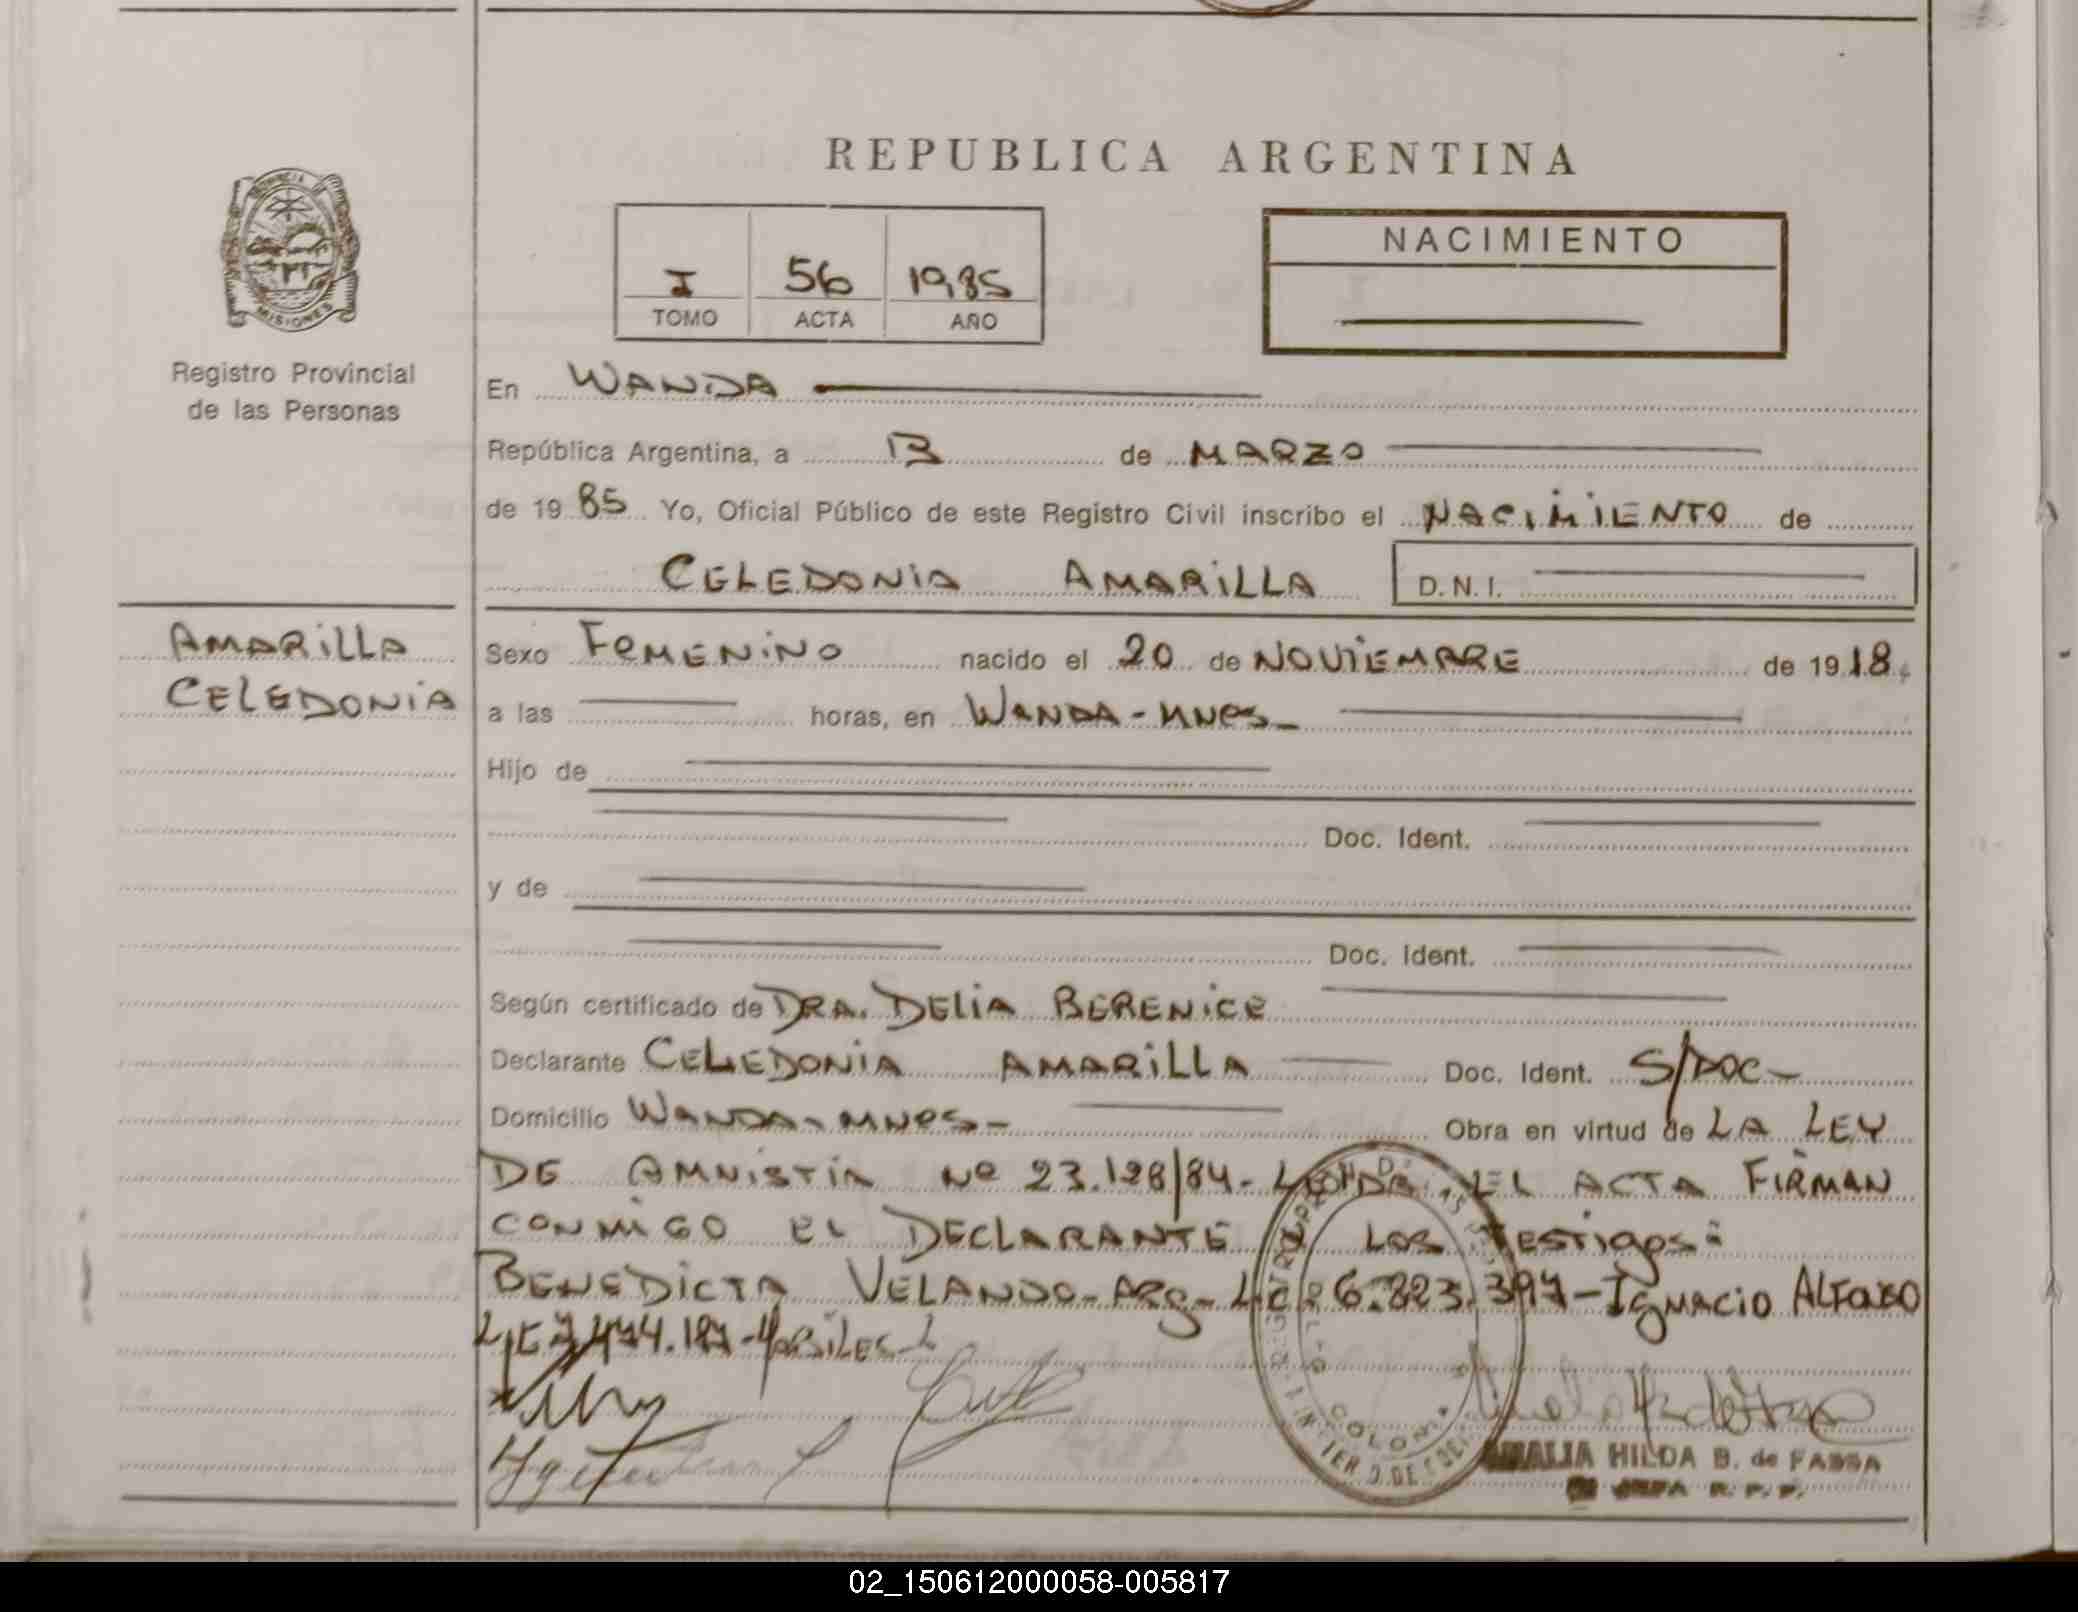 REPUBLICA ARGENTINA
I 56 19,85
TOMO ACTA AÑO
NACIMIENTO
PROVINCIA DE MISIONES
Registro Provincial
de las Personas
En WANDA
República Argentina, a 13 de MARZO
de 19 85 Yo, Oficial Público de este Registro Civil inscribo el NACIMIENTO de
CELEDONIA AMARILLA D.N.I.
AMARILLA
CELEDONIA
Sexo FEMENINO nacido el 20 de NOVIEMBRE de 19 18
a las horas, en WANDA-MNES-
Hijo de
Doc. Ident.
y de
Doc. Ident.
Según certificado de DRA. DELIA BERENICE
Declarante CELEDONIA AMARILLA Doc. Ident. S/DOC-
Domicilio WANDA-MNES- Obra en virtud de LA LEY
DE AMNISTIA Nº 23.128/84- EL ACTA FIRMAN
CONMIGO EL DECLARANTE LOS TESTIGOS:
BENEDICTA VELANDO-ARG-L.C. 6.823.397-IGNACIO ALFONSO
AMALIA HILDA B. de FASSA
JEFA R. P. P.
02_150612000058-005817